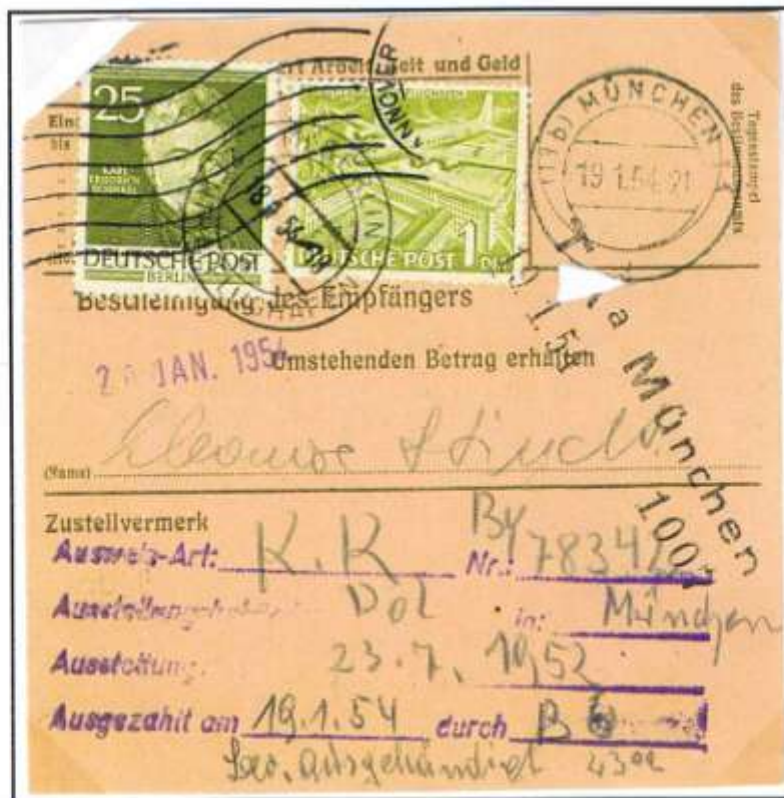 ert Arbeit, Zeit und Geld
25
KARL
FRIEDRICH
SCHINKEL
DEUTSCHE POST
BERLIN
DEUTSCHE POST 1 DM
(13b) MÜNCHEN
19 1.54 21
Tagesstempel
des Bestimmungsamts
Bescheinigung des Empfängers
JAN. 1954
Umstehenden Betrag erhalten
19.1.54
München
1001
(Name)
Zustellvermerk
Ausweis-Art: K.K Nr.: By 78342
Ausstellungsbehörde Pol in: München
Ausstellung: 23.7.1952
Ausgezahlt am 19.1.54 durch B
ausgehändigt